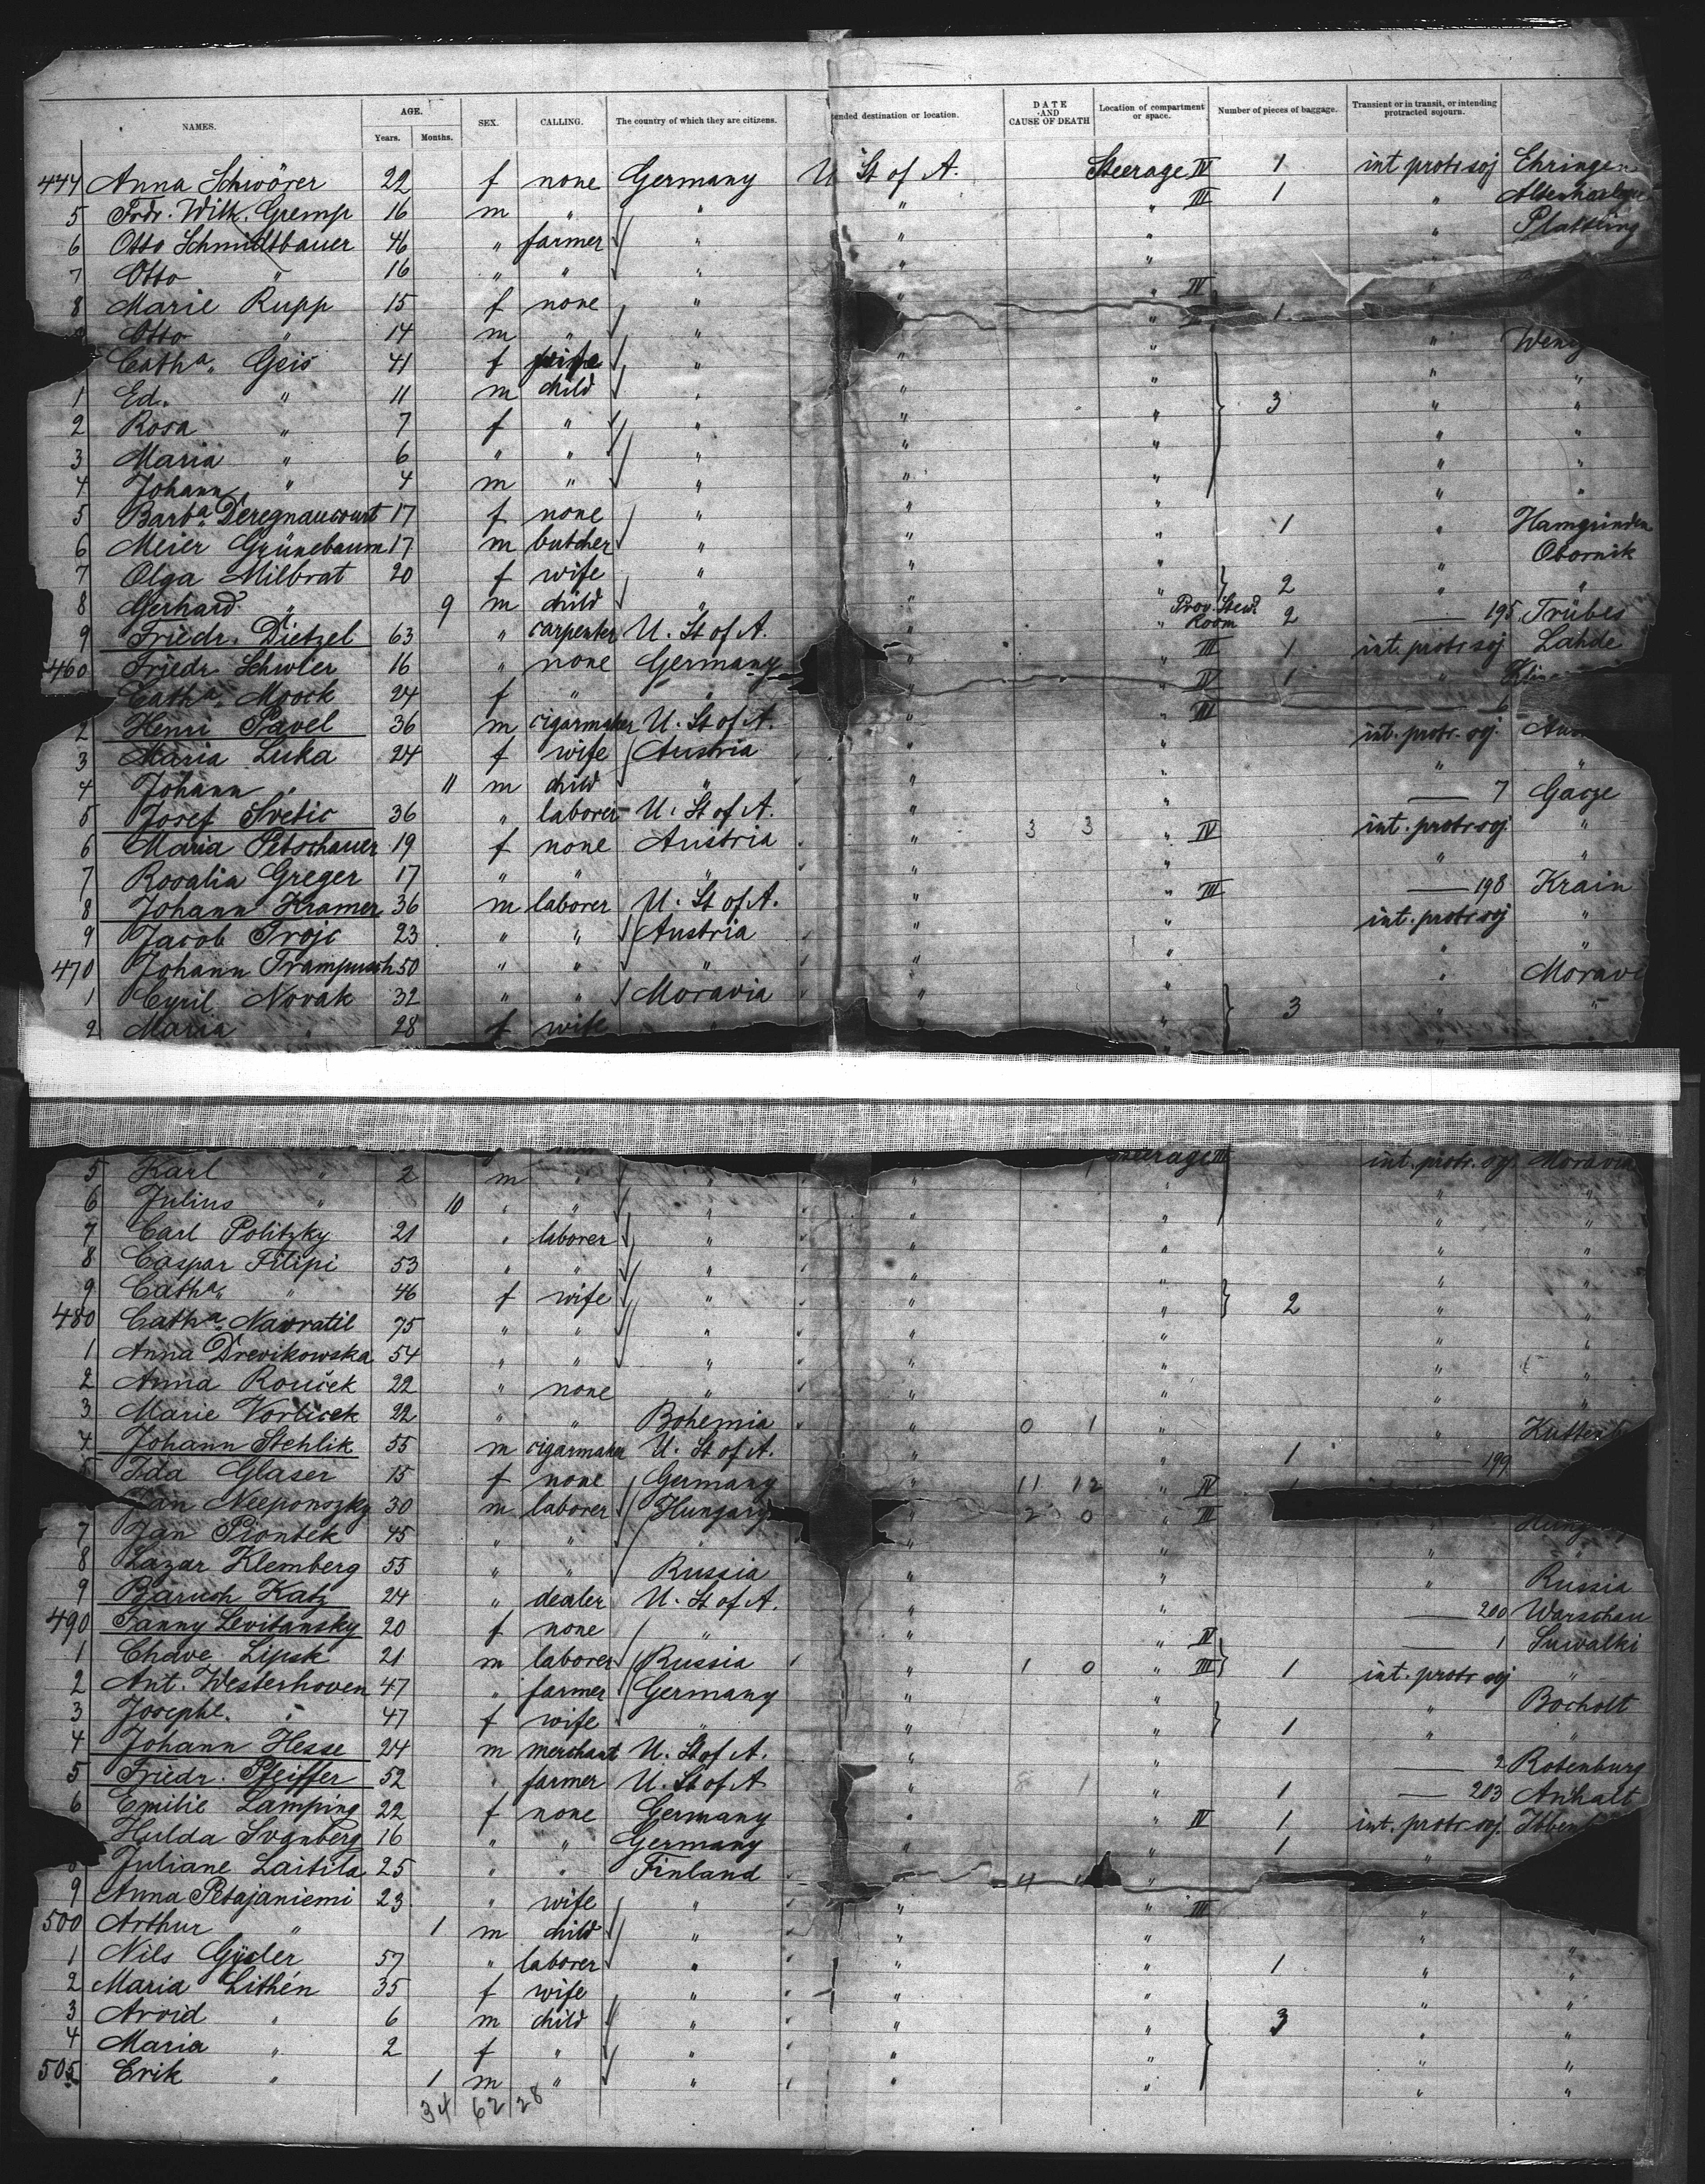 NAMES. AGE. Years. Months. SEX. CALLING. The country of which they are citizens. ended destination or location. DATE AND CAUSE OF DEATH Location of compartment or space. Number of pieces of baggage. Transient or in transit, or intending protracted sojourn.
444 Anna Schwörer 22 f none Germany U St of A. Steerage IV 1 int protr soj Ehringen
5 Frdr. Wilh. Gremp 16 m " " " " III 1 "
6 Otto Schmidtbauer 46 " farmer " " " " Plattling
7 Otto " 16 " " " " "
8 Marie Rupp 15 f none " " " IV 1 "
Otto " 14 m " " " "
Cath a. Geis 41 f wife " " " "
1 Ed. " 11 m child " " " 3 " "
2 Rosa " 7 f " " " " " "
3 Maria " 6 " " " " " " "
4 Johann " 4 m " " " " " "
5 Barb a. Deregnaucourt 17 f none " " " 1 "
6 Meier Grünebaum 17 m butcher " " " " Obornik
7 Olga Milbrat 20 f wife " " " 2 " "
8 Gerhard " 9 m child " " " Prov. Stew. Room 2
9 Friedr. Dietzel 63 " carpenter U. St of A. " " III 1 — 195 Trübes
460 Friedr. Schwler 16 " none Germany " " IV 1 int. protr soj Lahde
Cath a. Moock 24 f " " " " III "
2 Henri Pavel 36 m cigarmaker U. St of A. " " — 6
3 Maria Luka 24 f wife Austria " " int. protr. soj.
4 Johann " 11 m child " " " " "
5 Josef Svetic 36 " laborer U. St of A. " " — 7 Gacze
6 Maria Petschauer 19 f none Austria " 3 3 " IV int. protr soj. "
7 Rosalia Greger 17 " " " " " " "
8 Johann Kramer 36 m laborer U. St of A. " " III — 198 Krain
9 Jacob Troje 23 " " Austria " " int. protr soj "
470 Johann Trampusch 50 " " " " " " "
1 Cyril Novak 32 " " Moravia " " 3 "
2 Maria " 28 f wife " " " " "
5 Karl " 2 m " " " Steerage III int. protr. soj Moravia
6 Julius " 10 " " " " " " "
7 Carl Politzky 21 " laborer " " " " "
8 Caspar Filipi 53 " " " " " " "
9 Cath a. " 46 f wife " " " 2 " "
480 Cath a. Navratil 75 " " " " " " "
1 Anna Drevikowska 54 " " " " " " "
2 Anna Roucek 22 " none " " " " "
3 Marie Vorlicek 22 " " Bohemia " 0 1 " "
4 Johann Stehlik 55 m cigarmaker U. St of A. " " 1 — 199
Ida Glaser 15 f none Germany " 11 12 " IV
Jan Neeponszky 30 m laborer Hungary " 2 0 " III
7 Jan Piontek 45 " " " " " "
8 Lazar Klemberg 55 " " Russia " " " Russia
9 Baruch Katz 24 " dealer U. St of A. " " — 200 Warschau
490 Fanny Levitansky 20 f none " " " IV — 1 Suwalki
1 Chave Lipsk 21 m laborer Russia " 1 0 " III 1 int. protr soj "
2 Ant. Westerhoven 47 " farmer Germany " " " Bocholt
3 Josephl. " 47 f wife " " " 1 " "
4 Johann Hesse 24 m merchant U. St of A. " " — 2 Rotenburg
5 Friedr. Pfeiffer 52 " farmer U. St of A " 8 1 " 1 — 203 Anhalt
6 Emilie Lamping 22 f none Germany " " IV 1 int. protr soj.
Hulda Svanberg 16 " " Germany " " 1 "
Juliane Laitila 25 " " Finland " 4 "
9 Anna Petajaniemi 23 " wife " " " III "
500 Arthur " 1 m child " " " " "
1 Nils Gysler 57 " laborer " " " 1 " "
2 Maria Lithén 35 f wife " " " " "
3 Arvid " 6 m child " " " 3 " "
4 Maria " 2 f " " " " " "
505 Erik " 1 m " " " " " "
34 62/28